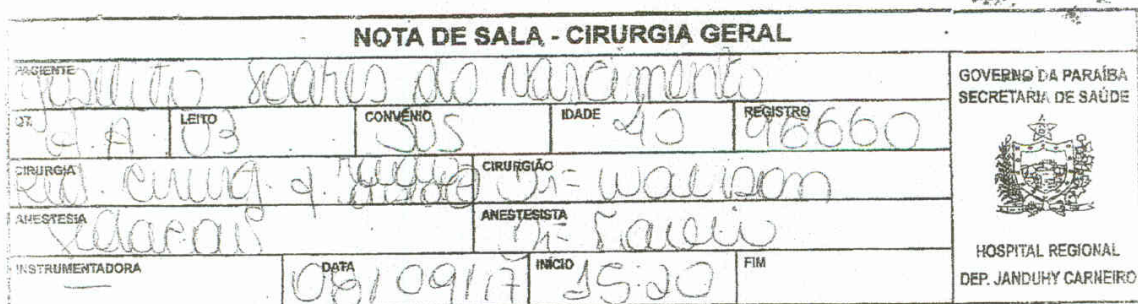 NOTA DE SALA - CIRURGIA GERAL
PACIENTE Soares do Nascimento
QT. LEITO 03 CONVÊNIO SUS IDADE 40 REGISTRO 96660
CIRURGIA Red. Cirurg. d CIRURGIÃO Dr= Walison
ANESTESIA Sedacao ANESTESISTA Dr=
INSTRUMENTADORA — DATA 06/09/17 INÍCIO 15:20 FIM
GOVERNO DA PARAÍBA
SECRETARIA DE SAÚDE
HOSPITAL REGIONAL
DEP. JANDUHY CARNEIRO